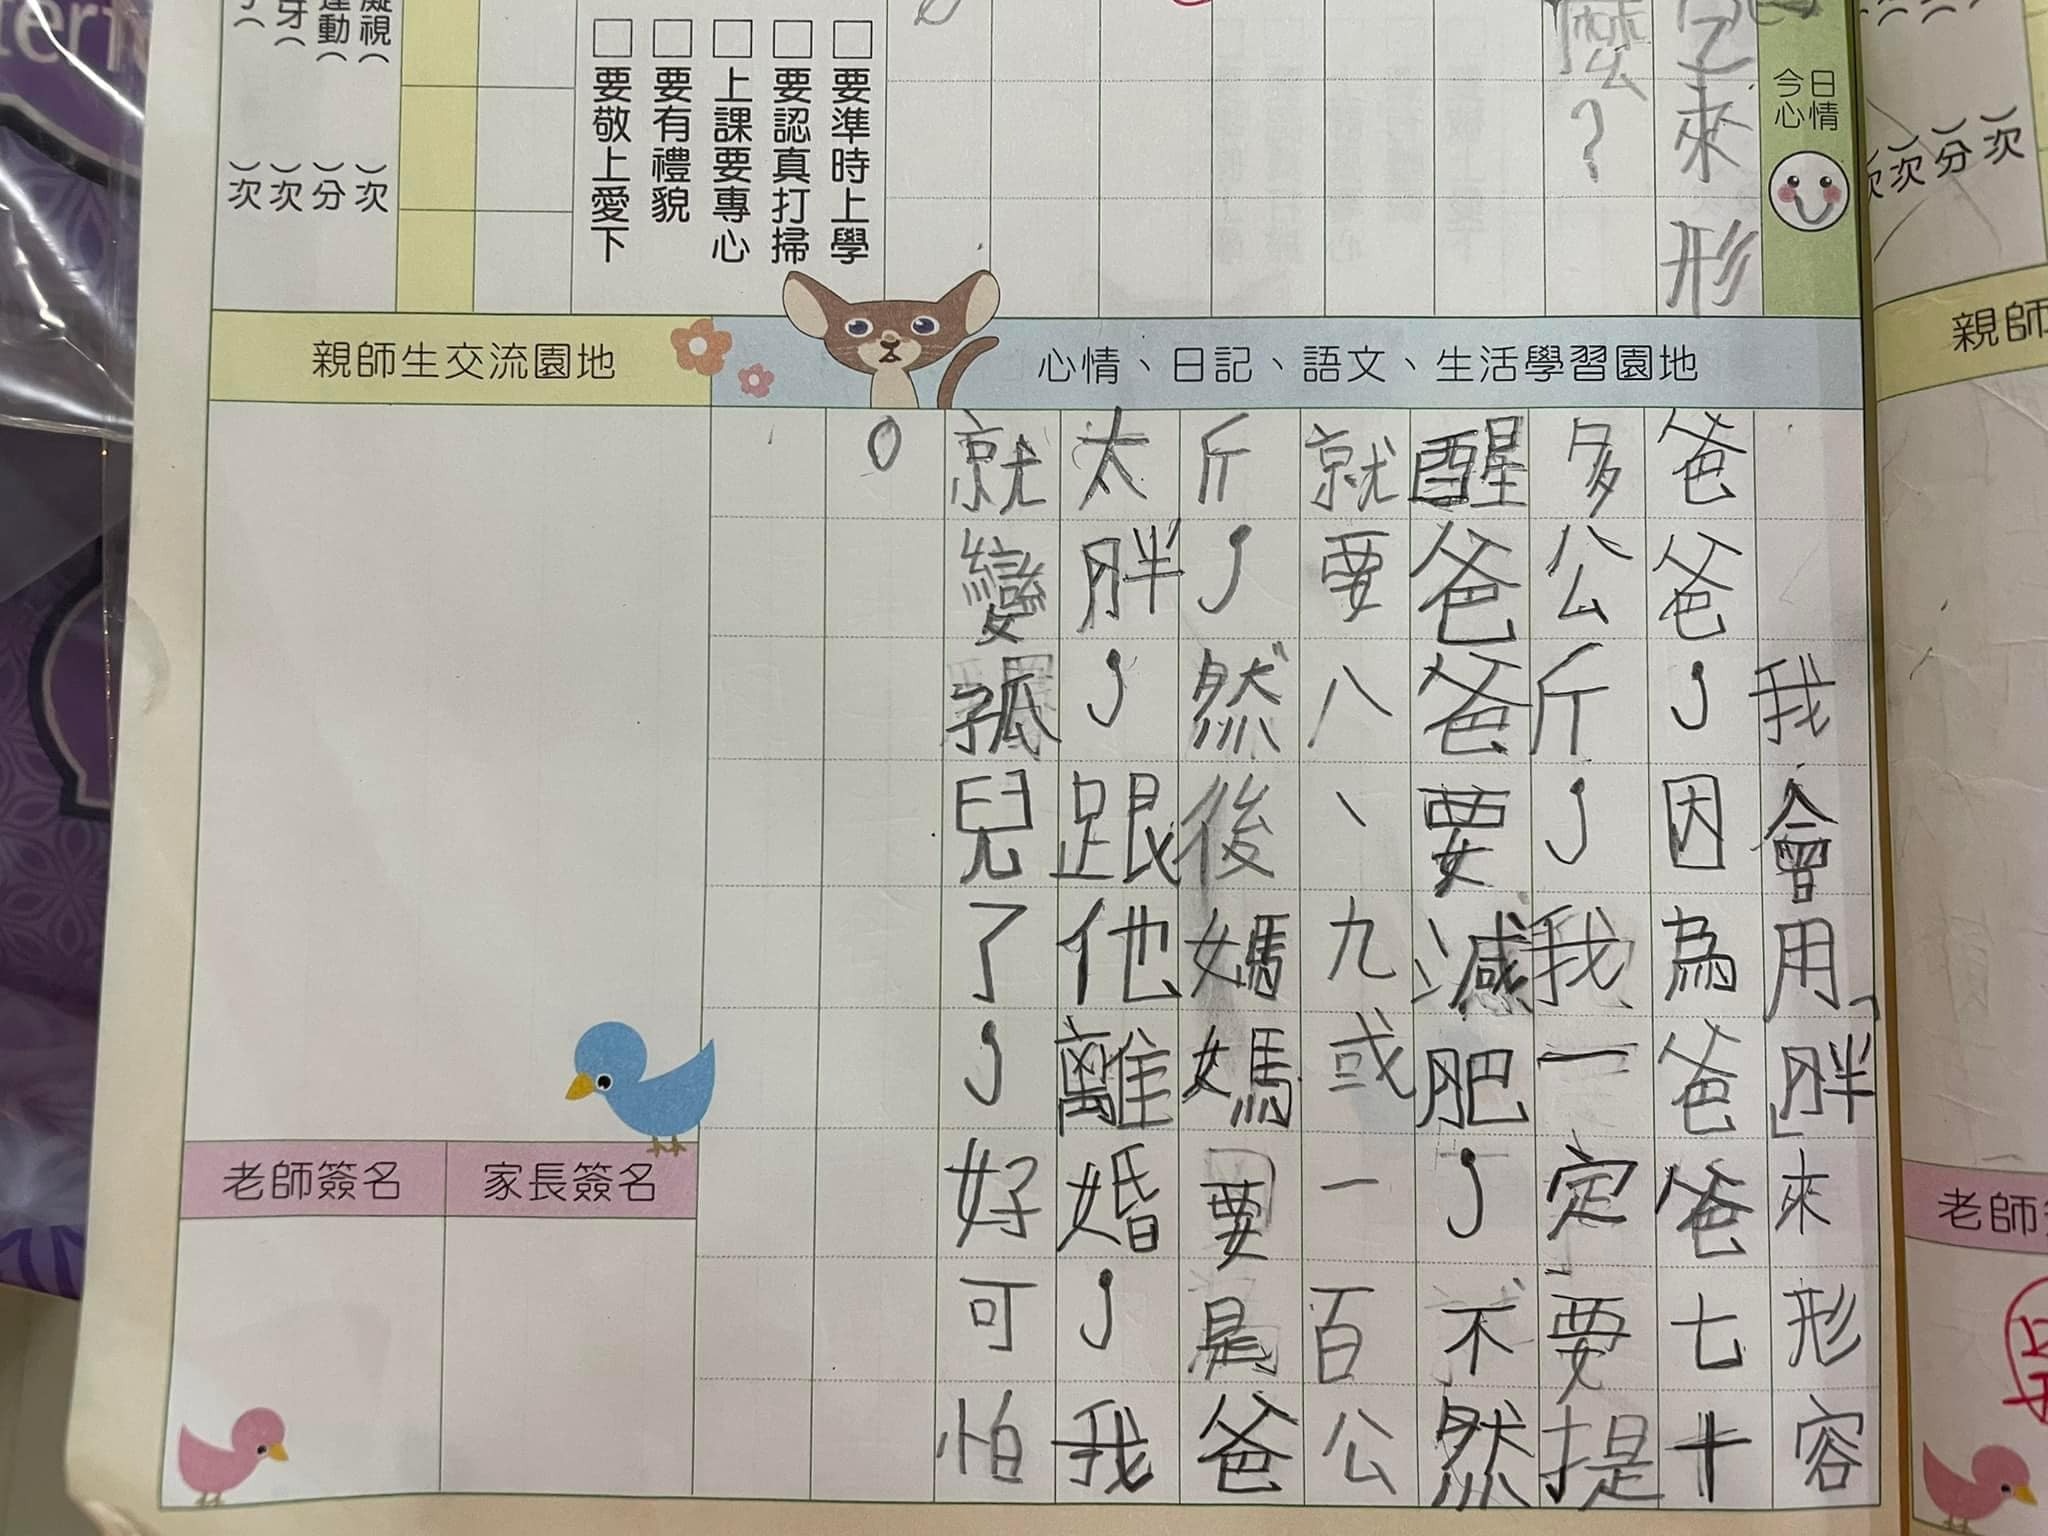 □要準時上學
□要認真打掃
□上課要專心
□要有禮貌
□要敬上愛下
今日
心情
來形
麼?
)次
)分
)次
)次
心情、日記、語文、生活學習園地
親師生交流園地
我會用「胖」來形容
爸爸,因為爸爸七十
多公斤,我一定要提
醒爸爸要減肥,不然
就要八、九或一百公
斤,然後媽媽要是爸
太胖,跟他離婚,我
就變孤兒了,好可怕
。
老師簽名
家長簽名
親師
老師